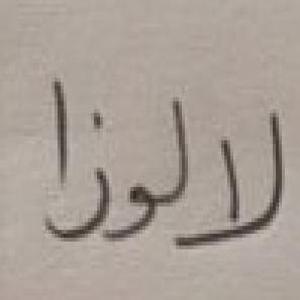 لا لوزا